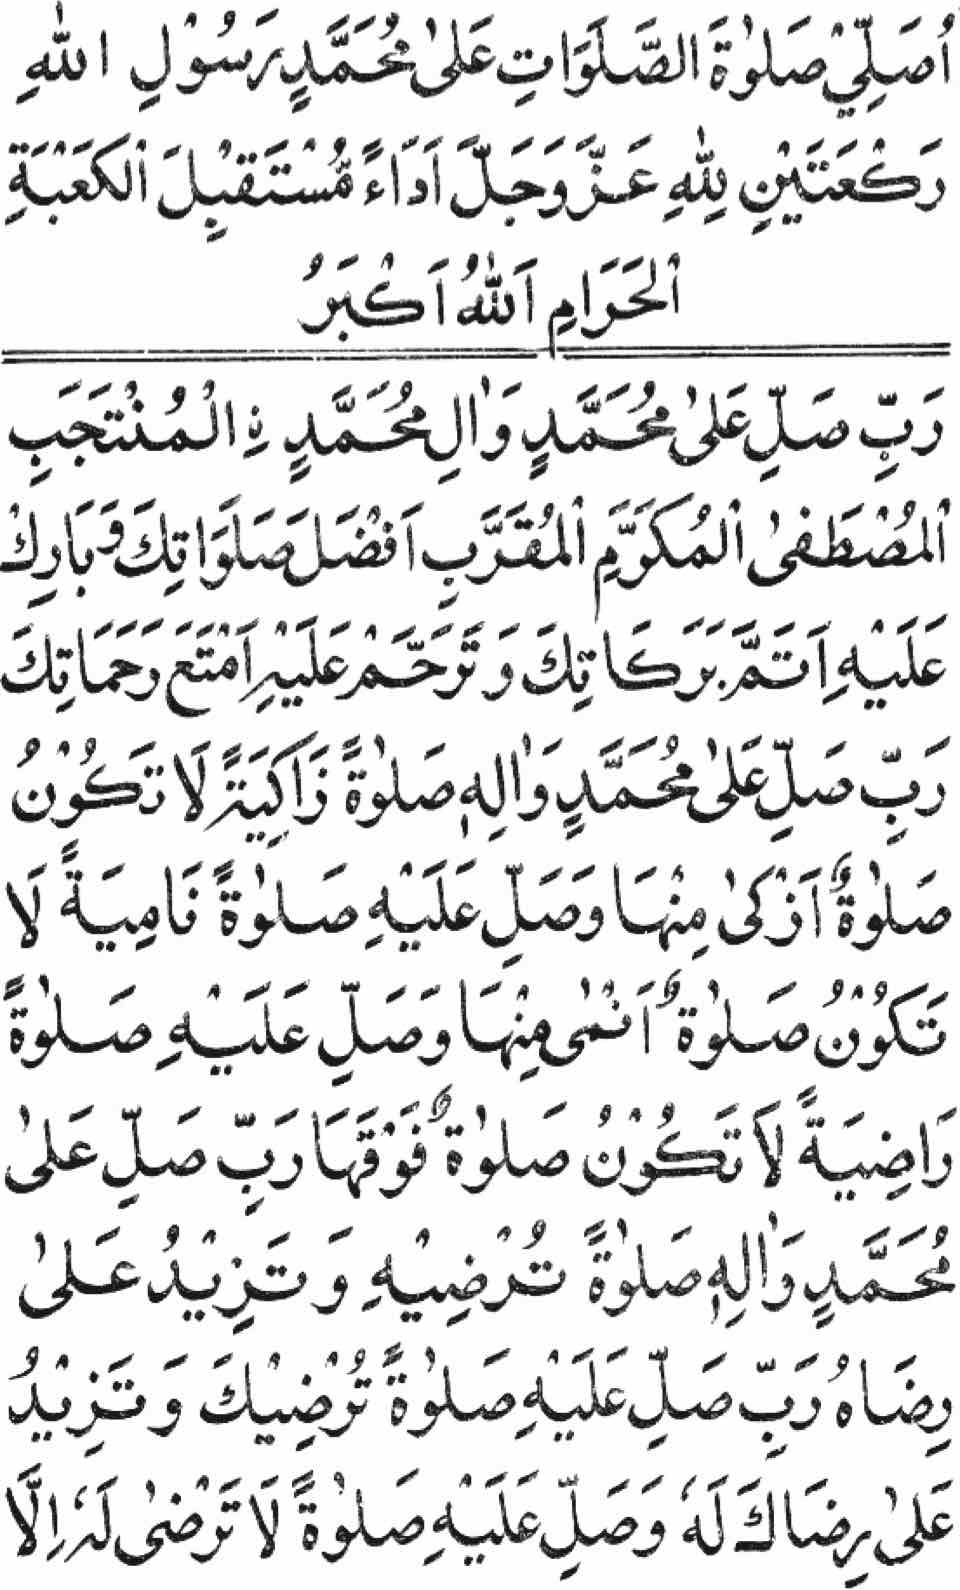 اُصَلِّيْ صَلٰوةَ الصَّلَوَاتِ عَلٰى مُحَمَّدٍ رَسُوْلِ اللّٰهِ
رَكْعَتَيْنِ لِلّٰهِ عَزَّ وَجَلَّ اَدَاءً مُّسْتَقْبِلَ الْكَعْبَةِ
الْحَرَامِ اَللّٰهُ اَكْبَرُ
رَبِّ صَلِّ عَلٰى مُحَمَّدٍ وَاٰلِ مُحَمَّدٍ نِ الْمُنْتَجَبِ
الْمُصْطَفٰى الْمُكَرَّمِ الْمُقَرَّبِ اَفْضَلَ صَلَوَاتِكَ وَبَارِكْ
عَلَيْهِ اَتَمَّ بَرَكَاتِكَ وَتَرَحَّمْ عَلَيْهِ اَمْتَعَ رَحَمَاتِكَ
رَبِّ صَلِّ عَلٰى مُحَمَّدٍ وَاٰلِهٖ صَلٰوةً زَاكِيَةً لَا تَكُوْنُ
صَلٰوةٌ اَزْكٰى مِنْهَا وَصَلِّ عَلَيْهِ صَلٰوةً نَامِيَةً لَا
تَكُوْنُ صَلٰوةٌ اَنْمٰى مِنْهَا وَصَلِّ عَلَيْهِ صَلٰوةً
رَاضِيَةً لَا تَكُوْنُ صَلٰوةٌ فَوْقَهَا رَبِّ صَلِّ عَلٰى
مُحَمَّدٍ وَاٰلِهٖ صَلٰوةً تُرْضِيْهِ وَتَزِيْدُ عَلٰى
رِضَاهُ رَبِّ صَلِّ عَلَيْهِ صَلٰوةً تُرْضِيْكَ وَتَزِيْدُ
عَلٰى رِضَاكَ لَهٗ وَصَلِّ عَلَيْهِ صَلٰوةً لَا تَرْضٰى لَهٗ اِلَّا